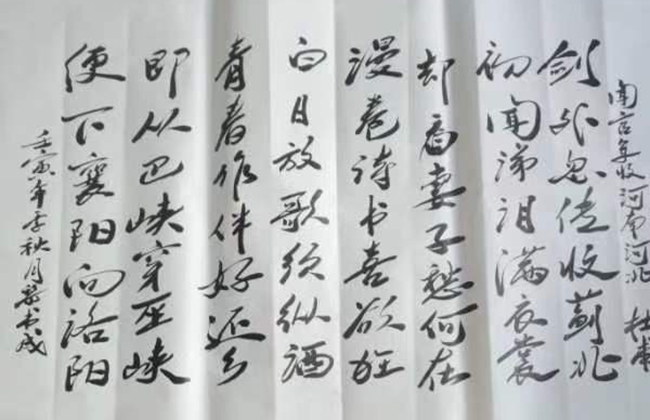 闻官军收河南河北 杜甫
剑外忽传收蓟北
初闻涕泪满衣裳
却看妻子愁何在
漫卷诗书喜欲狂
白日放歌须纵酒
青春作伴好还乡
即从巴峡穿巫峡
便下襄阳向洛阳
壬寅年季秋月书成